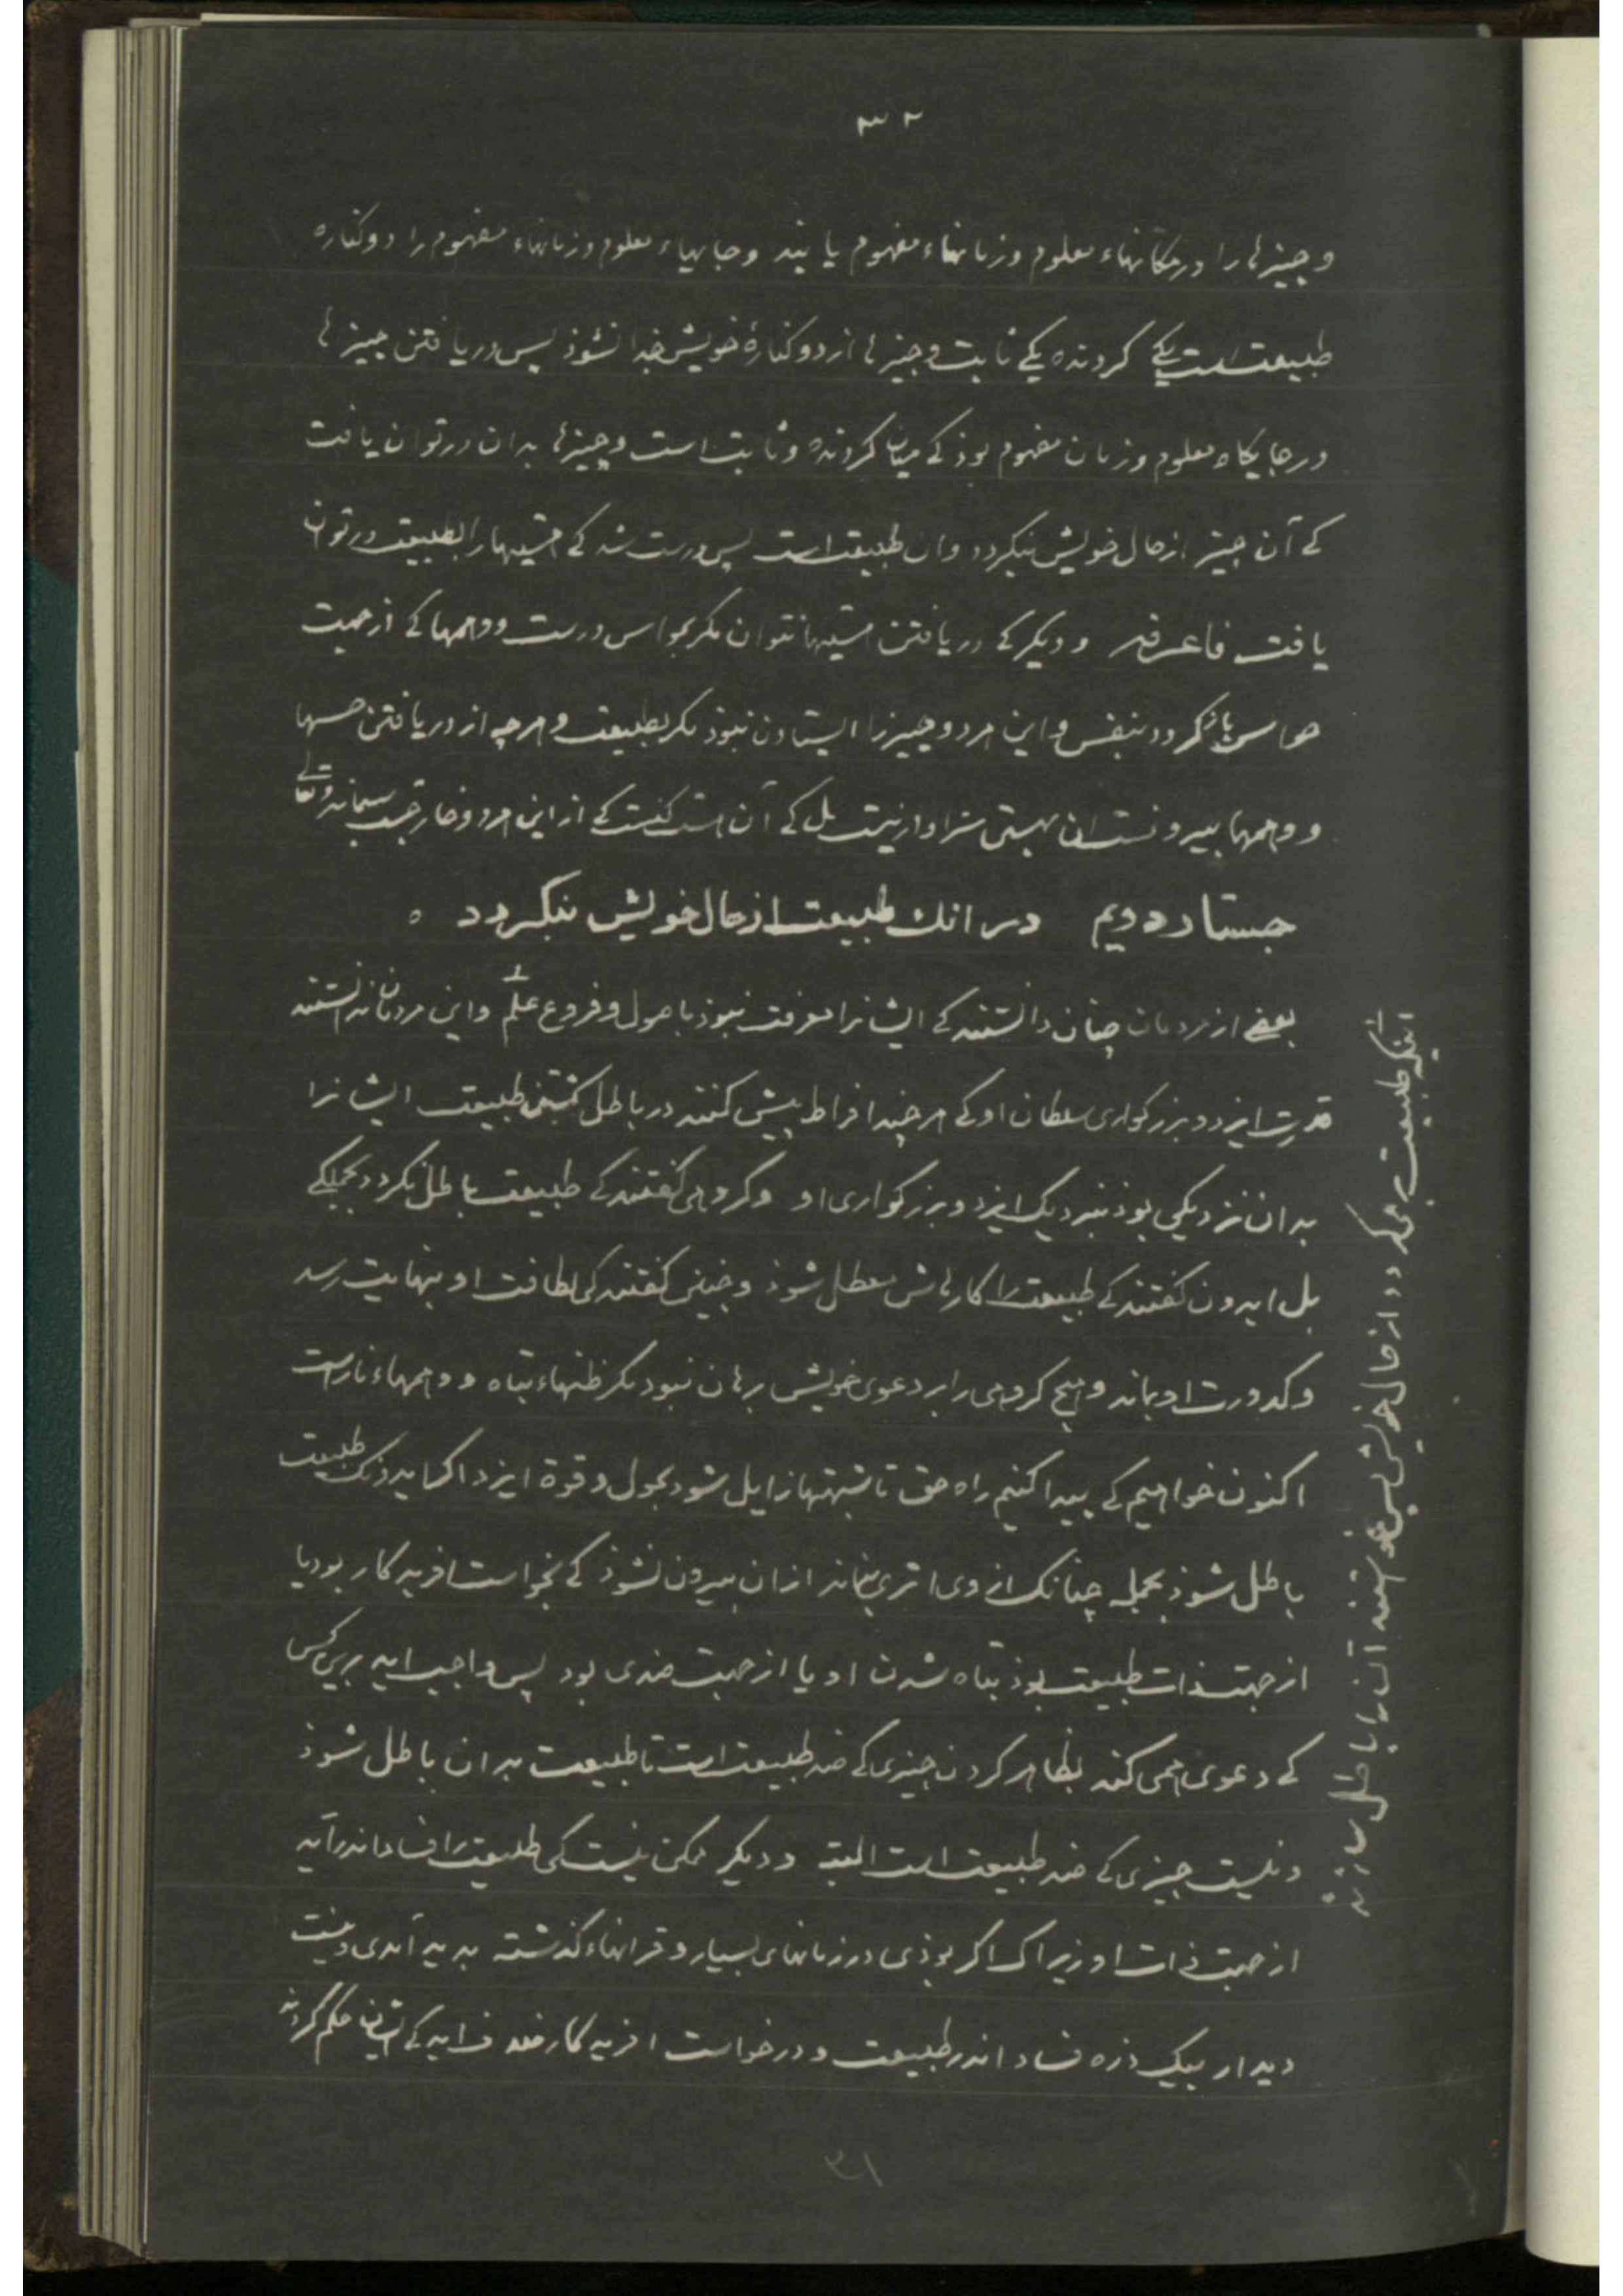 ۳۲
و چیزها را در مکانهاء معلوم و زمانهاء مفهوم یابند و جایهاء معلوم و زمانهاء مفهوم را دو کناره
طبیعت است یکی کردنده یکی ثابت و چیزها از دو کنارهٔ خویش جدا نشوذ پس دریافتن چیزها
در جایگاه معلوم و زمان مفهوم بوذ کی میان کردنده و ثابت است و چیزها بدان در توان یافت
کی آن چیز از حال خویش نیکردد وان طبیعت است پس درست شد کی را بطبیعت در توان
یافت فاعرفه و دیکر کی دریافتن نتوان مکر بحواس درست و وهمها کی از جهت
حواس باز کردد بنفس و این هر دو چیز را ایستادن نبوذ مکر بطبیعت و هرچه از دریافتن حسها
و وهمها بیرونست ان بهستی سزاوار نیست بل کی آن کی از این هر دو خارجست سبحانه و تعالی
جستار دویم در انك طبیعت از حال خویش نیکردد ه
بعضی از مردمان چنان دانستند کی ایشانرا معرفت نبوذ باصول و فروع علم و این مردمان ندانستند
قدرت ایزد و بزرکواری سلطان او کی هر چند افراط بیش کنند در باطل کشتن طبیعت ایشانرا
بدان نزدیکی بوذ بنزدیک ایزد و بزرکواری او و کروهی کفتند کی طبیعت باطل نکردد بجملکی
بل ایدون کفتند کی طبیعت را کارهاش معطل شوذ و چنین کفتند کی لطافت او بنهایت رسد
و کدورت او بماند و هیچ کروهی را بر دعوی خویش برهان نبود مکر ظنهاء تباه و وهمهاء ناراست
اکنون خواهیم کی پیدا کنیم راه حق تا شبهتها زایل شود بحول و قوة ایزد اکر ایدونک طبیعت
باطل شوذ بجمله چنانک از وی اثری نماند از ان بیرون نشوذ کی بخواست افریدکار بود یا
از جهت ذات طبیعت بوذ تباه شدن او یا از جهت ضدی بود پس واجب اید برین کس
کی دعوی همی کند بظاهر کردن چیزی کی ضد طبیعت است تا طبیعت بدان باطل شوذ
و نیست چیزی کی ضد طبیعت است البته و دیکر ممکن نیست کی طبیعت را فساد اندر آید
از جهت ذات او زیراک اکر بوذی در زمانهای بسیار و قرانهاء کذشته پدید آمدی و نیست
دیدار بیک ذره فساد اندر طبیعت و در خواست افریدکار کی حکم کردند
اینکه طبیعت می کردد از حال خویش پس آن را باطل سازند
۳۱